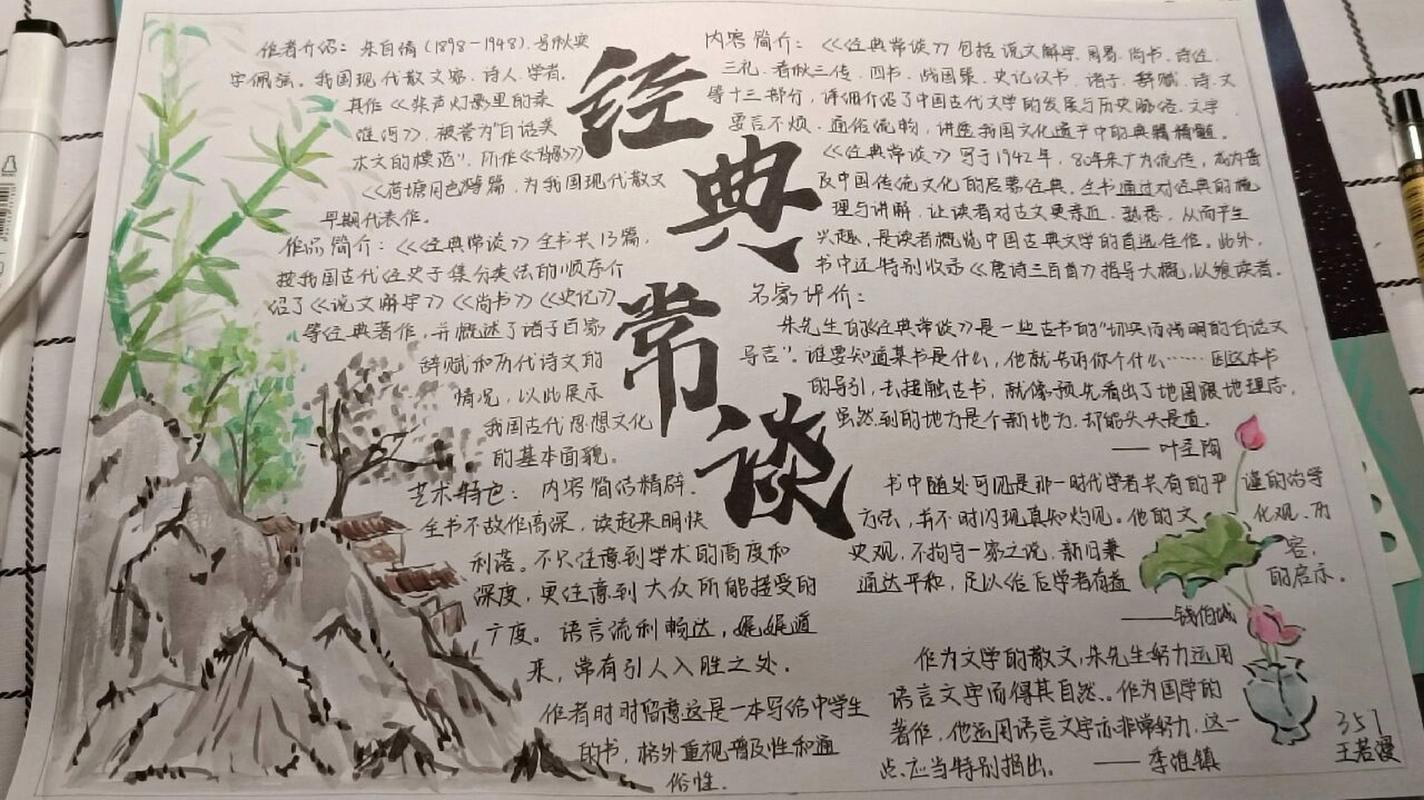 经典常谈
作者介绍：朱自清（1898-1948）.号秋实
字佩弦。我国现代散文家.诗人.学者.
其作《桨声灯影里的秦
淮河》，被誉为"白话美
术文的模范"，所作《背影》
《荷塘月色》等篇，为我国现代散文
早期代表作。
作品简介：《《经典常谈》》全书共13篇，
按我国古代经史子集分类法的顺序介
绍了《说文解字》《尚书》《史记》
等经典著作，并概述了诸子百家
辞赋和历代诗文的
情况，以此展示
我国古代思想文化
的基本面貌。
艺术特色：内容简洁精辟.
全书不故作高深，读起来明快
利落。不只注意到学术的高度和
深度，更注意到大众所能接受的
广度。语言流利畅达，娓娓道
来，常有引人入胜之处.
作者时时留意这是一本写给中学生
的书，格外重视普及性和通
俗性.
内容简介：《《经典常谈》》包括说文解字.周易.尚书.诗经.
三礼.春秋三传.四书.战国策.史记汉书.诸子.辞赋.诗.文
等十三部分，详细介绍了中国古代文学的发展与历史脉络.文字
要言不烦.通俗流畅，讲透我国文化遗产中的典籍精髓.
《《经典常谈》》写于1942年，80年来广为流传，成为普
及中国传统文化的启蒙经典.全书通过对经典的梳
理与讲解.让读者对古文更亲近.熟悉，从而产生
兴趣，是读者概览中国古典文学的首选佳作。此外，
书中还特别收录《唐诗三百首》指导大概，以飨读者.
名家评价：
朱先生的《经典常谈》是一些古书的"切实而浅明的白话文
导言"。谁要知道某书是什么，他就告诉你个什么……因这本书
的导引，去接触古书，就像预先看出了地图跟地理志，
虽然到的地方是个新地方，却能头头是道.
——叶圣陶
书中随处可见是那一时代学者共有的平 谨的治学
方法，并不时闪现真知灼见。他的文 化观.历
史观.不拘守一家之说.新旧兼 容，
通达平和，足以给后学者有益 的启示.
——钱伯城
作为文学的散文，朱先生努力运用
语言文字而得其自然.。作为国学的
著作，他运用语言文字亦非常努力.这一
点.应当特别指出.——季淮镇
351
王若漫